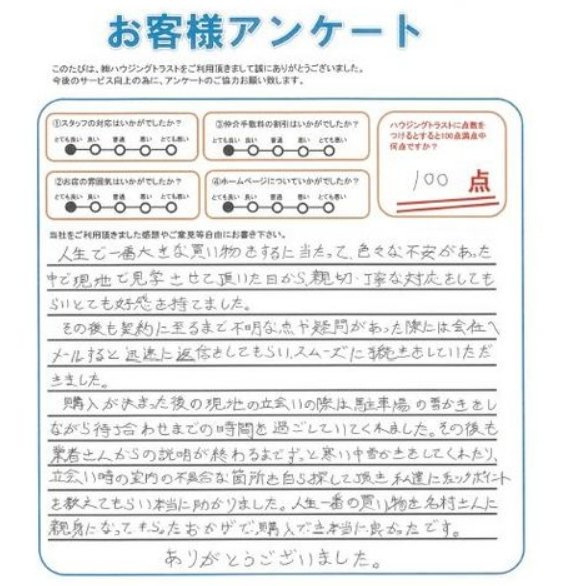 お客様アンケート
このたびは、㈱ハウジングトラストをご利用頂きまして誠にありがとうございました。
今後のサービス向上の為に、アンケートのご協力お願い致します。
①スタッフの対応はいかがでしたか？
とても良い 良い 普通 悪い とても悪い
③仲介手数料の割引はいかがでしたか？
とても良い 良い 普通 悪い とても悪い
ハウジングトラストに点数を
つけるとすると100点満点中
何点ですか？
100 点
②お店の雰囲気はいかがでしたか？
とても良い 良い 普通 悪い とても悪い
④ホームページについていかがでしたか？
とても良い 良い 普通 悪い とても悪い
当社をご利用頂きました感想やご意見等自由にお書き下さい。
人生で一番大きな買い物をするに当たって、色々な不安があった
中で現地で見学させて頂いた日から、親切・丁寧な対応をしても
らいとても好感を持てました。
その後も契約に至るまで不明な点や疑問があった際には会社へ
メールすると迅速に返信をしてもらい、スムーズに手続きをしていただ
きました。
購入が決まった後の現地の立会いの際は駐車場の雪かきをし
ながら待ち合わせまでの時間を過ごしていてくれました。その後も
業者さんからの説明が終わるまでずっと寒い中雪かきをしてくれたり、
立会い時の室内の不具合な箇所を自ら探して頂き私達にチェックポイント
を教えてもらい本当に助かりました。人生一番の買い物を名村さんに
親身になってもらったおかげで、購入でき本当に良かったです。
ありがとうございました。